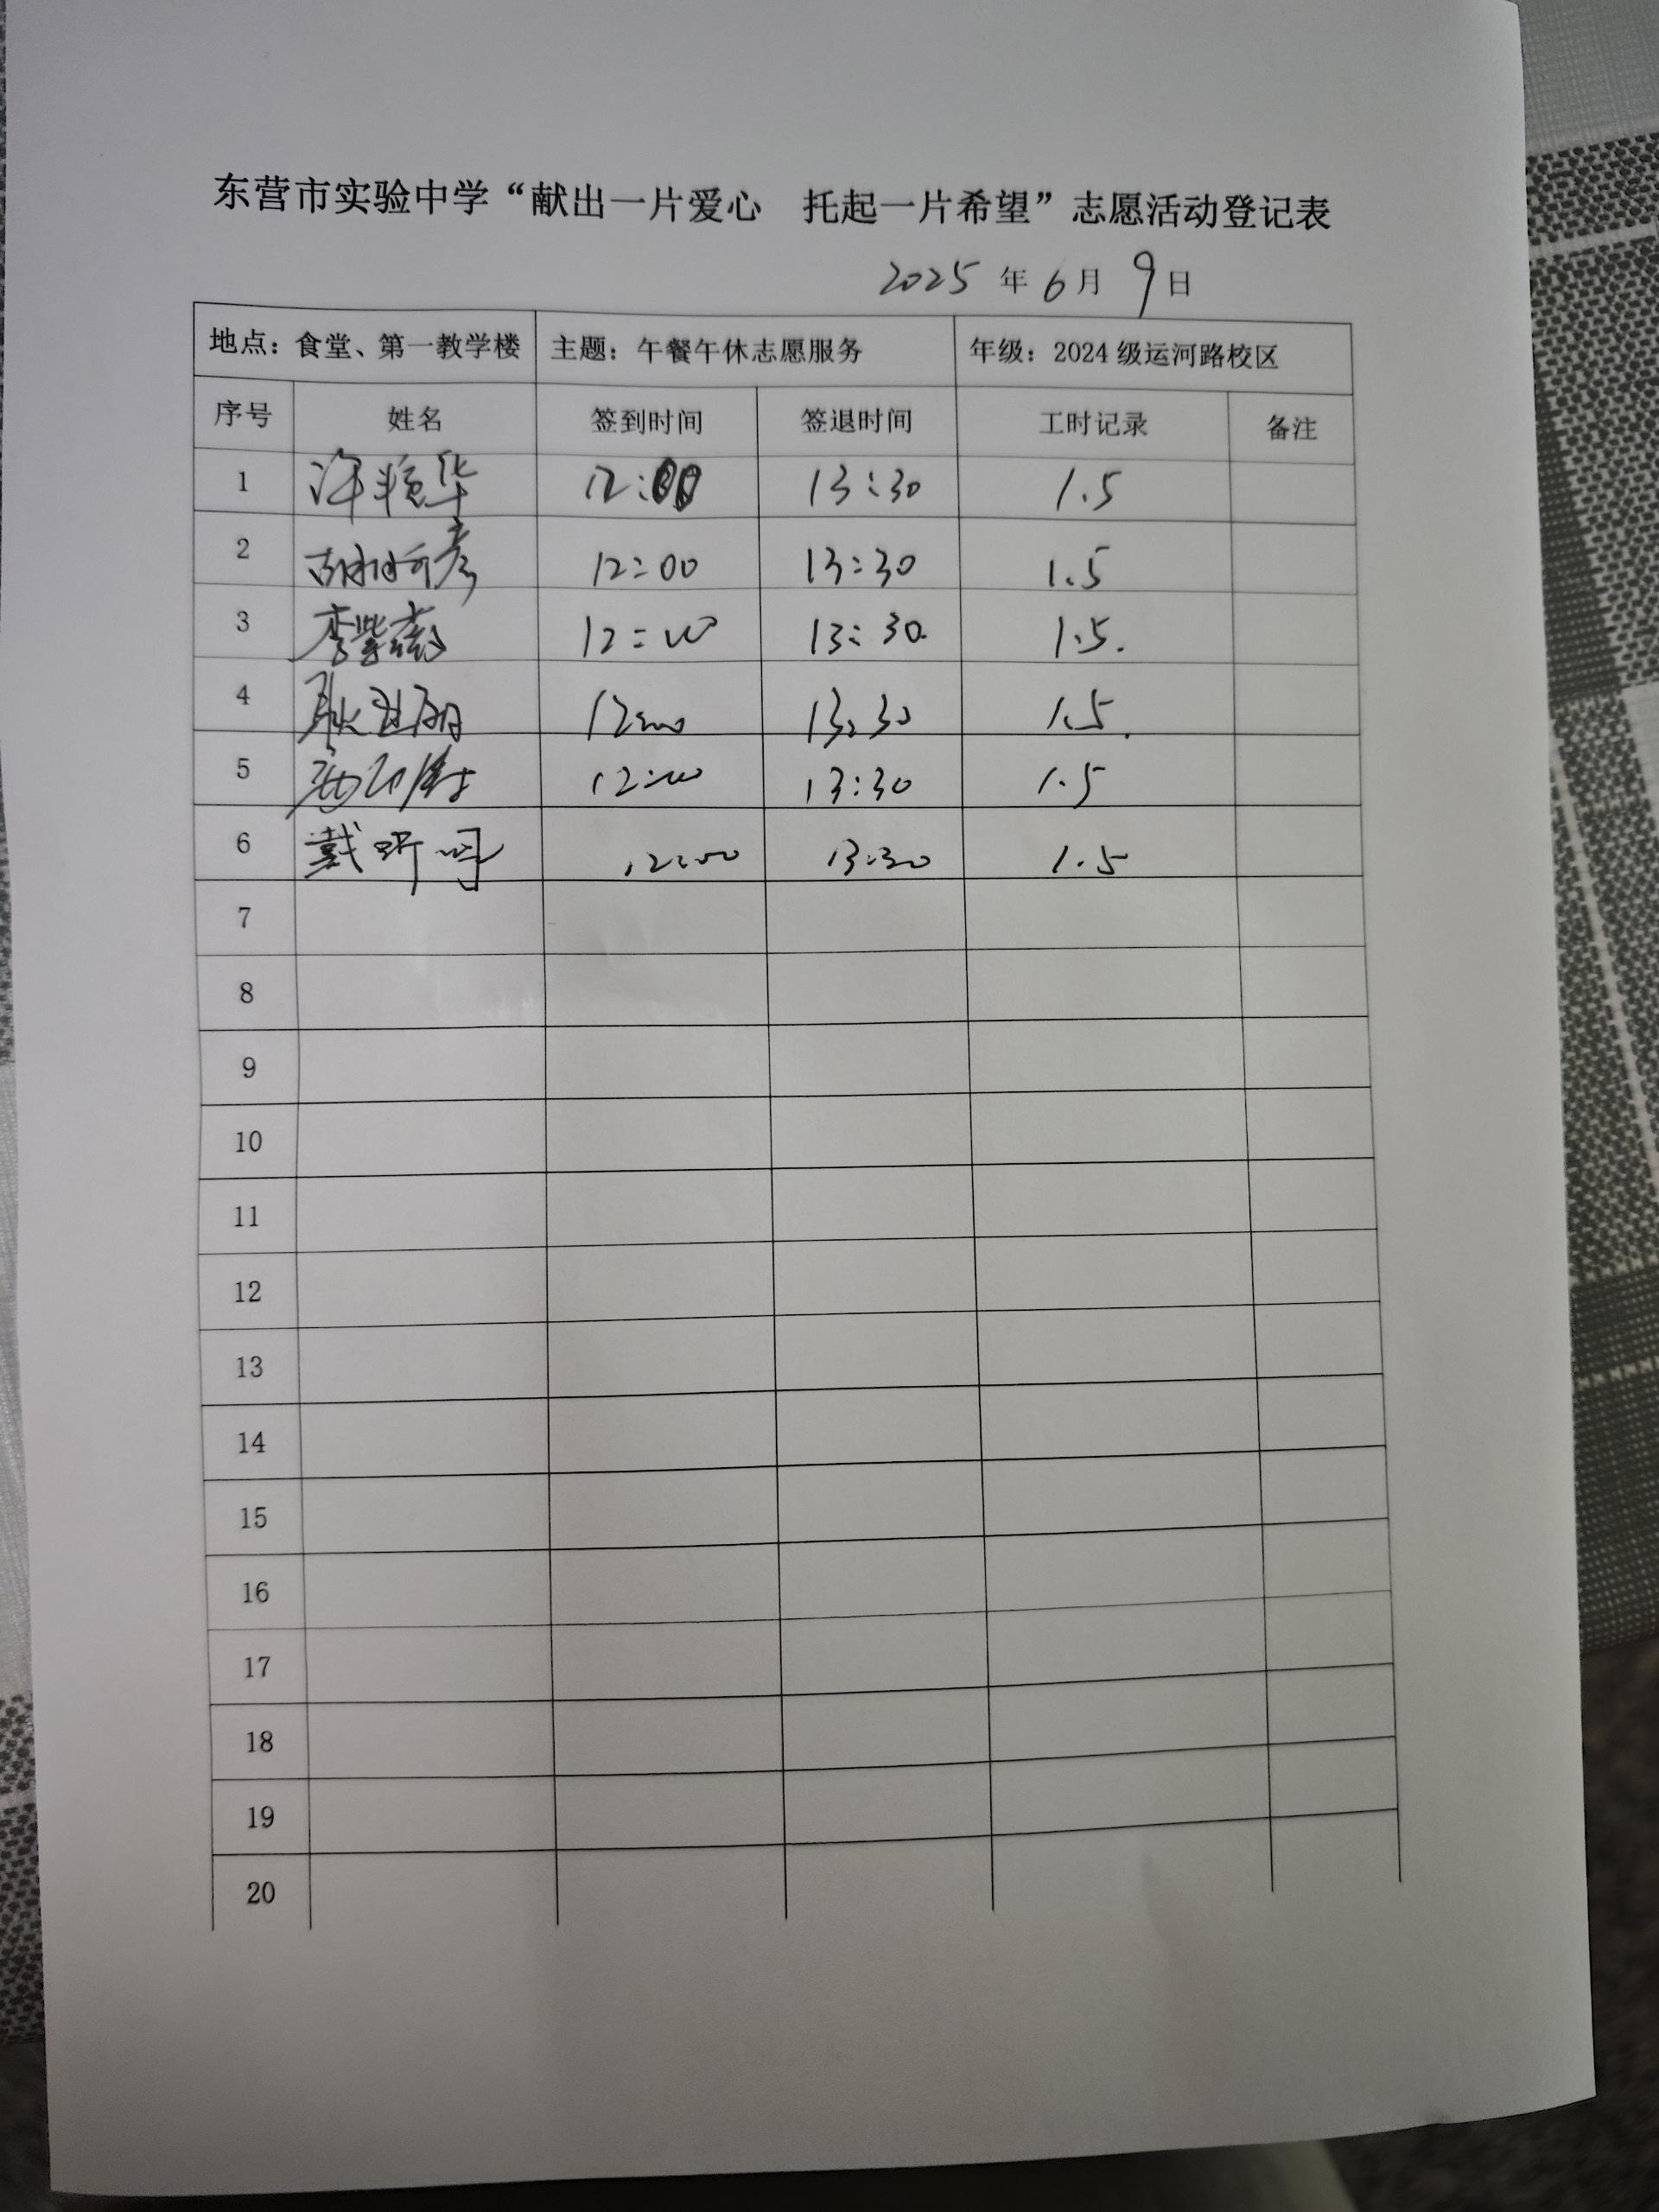 东营市实验中学“献出一片爱心 托起一片希望”志愿活动登记表
2025 年 6 月 9 日
地点：食堂、第一教学楼 主题：午餐午休志愿服务 年级：2024 级运河路校区
序号 姓名 签到时间 签退时间 工时记录 备注
1 华 12:00 13:30 1.5
2 彦 12:00 13:30 1.5
3 李紫 12:00 13:30. 1.5.
4 耿 12:00 13:30 1.5.
5 12:00 13:30 1.5
6 戴昕 12:00 13:30 1.5
7
8
9
10
11
12
13
14
15
16
17
18
19
20